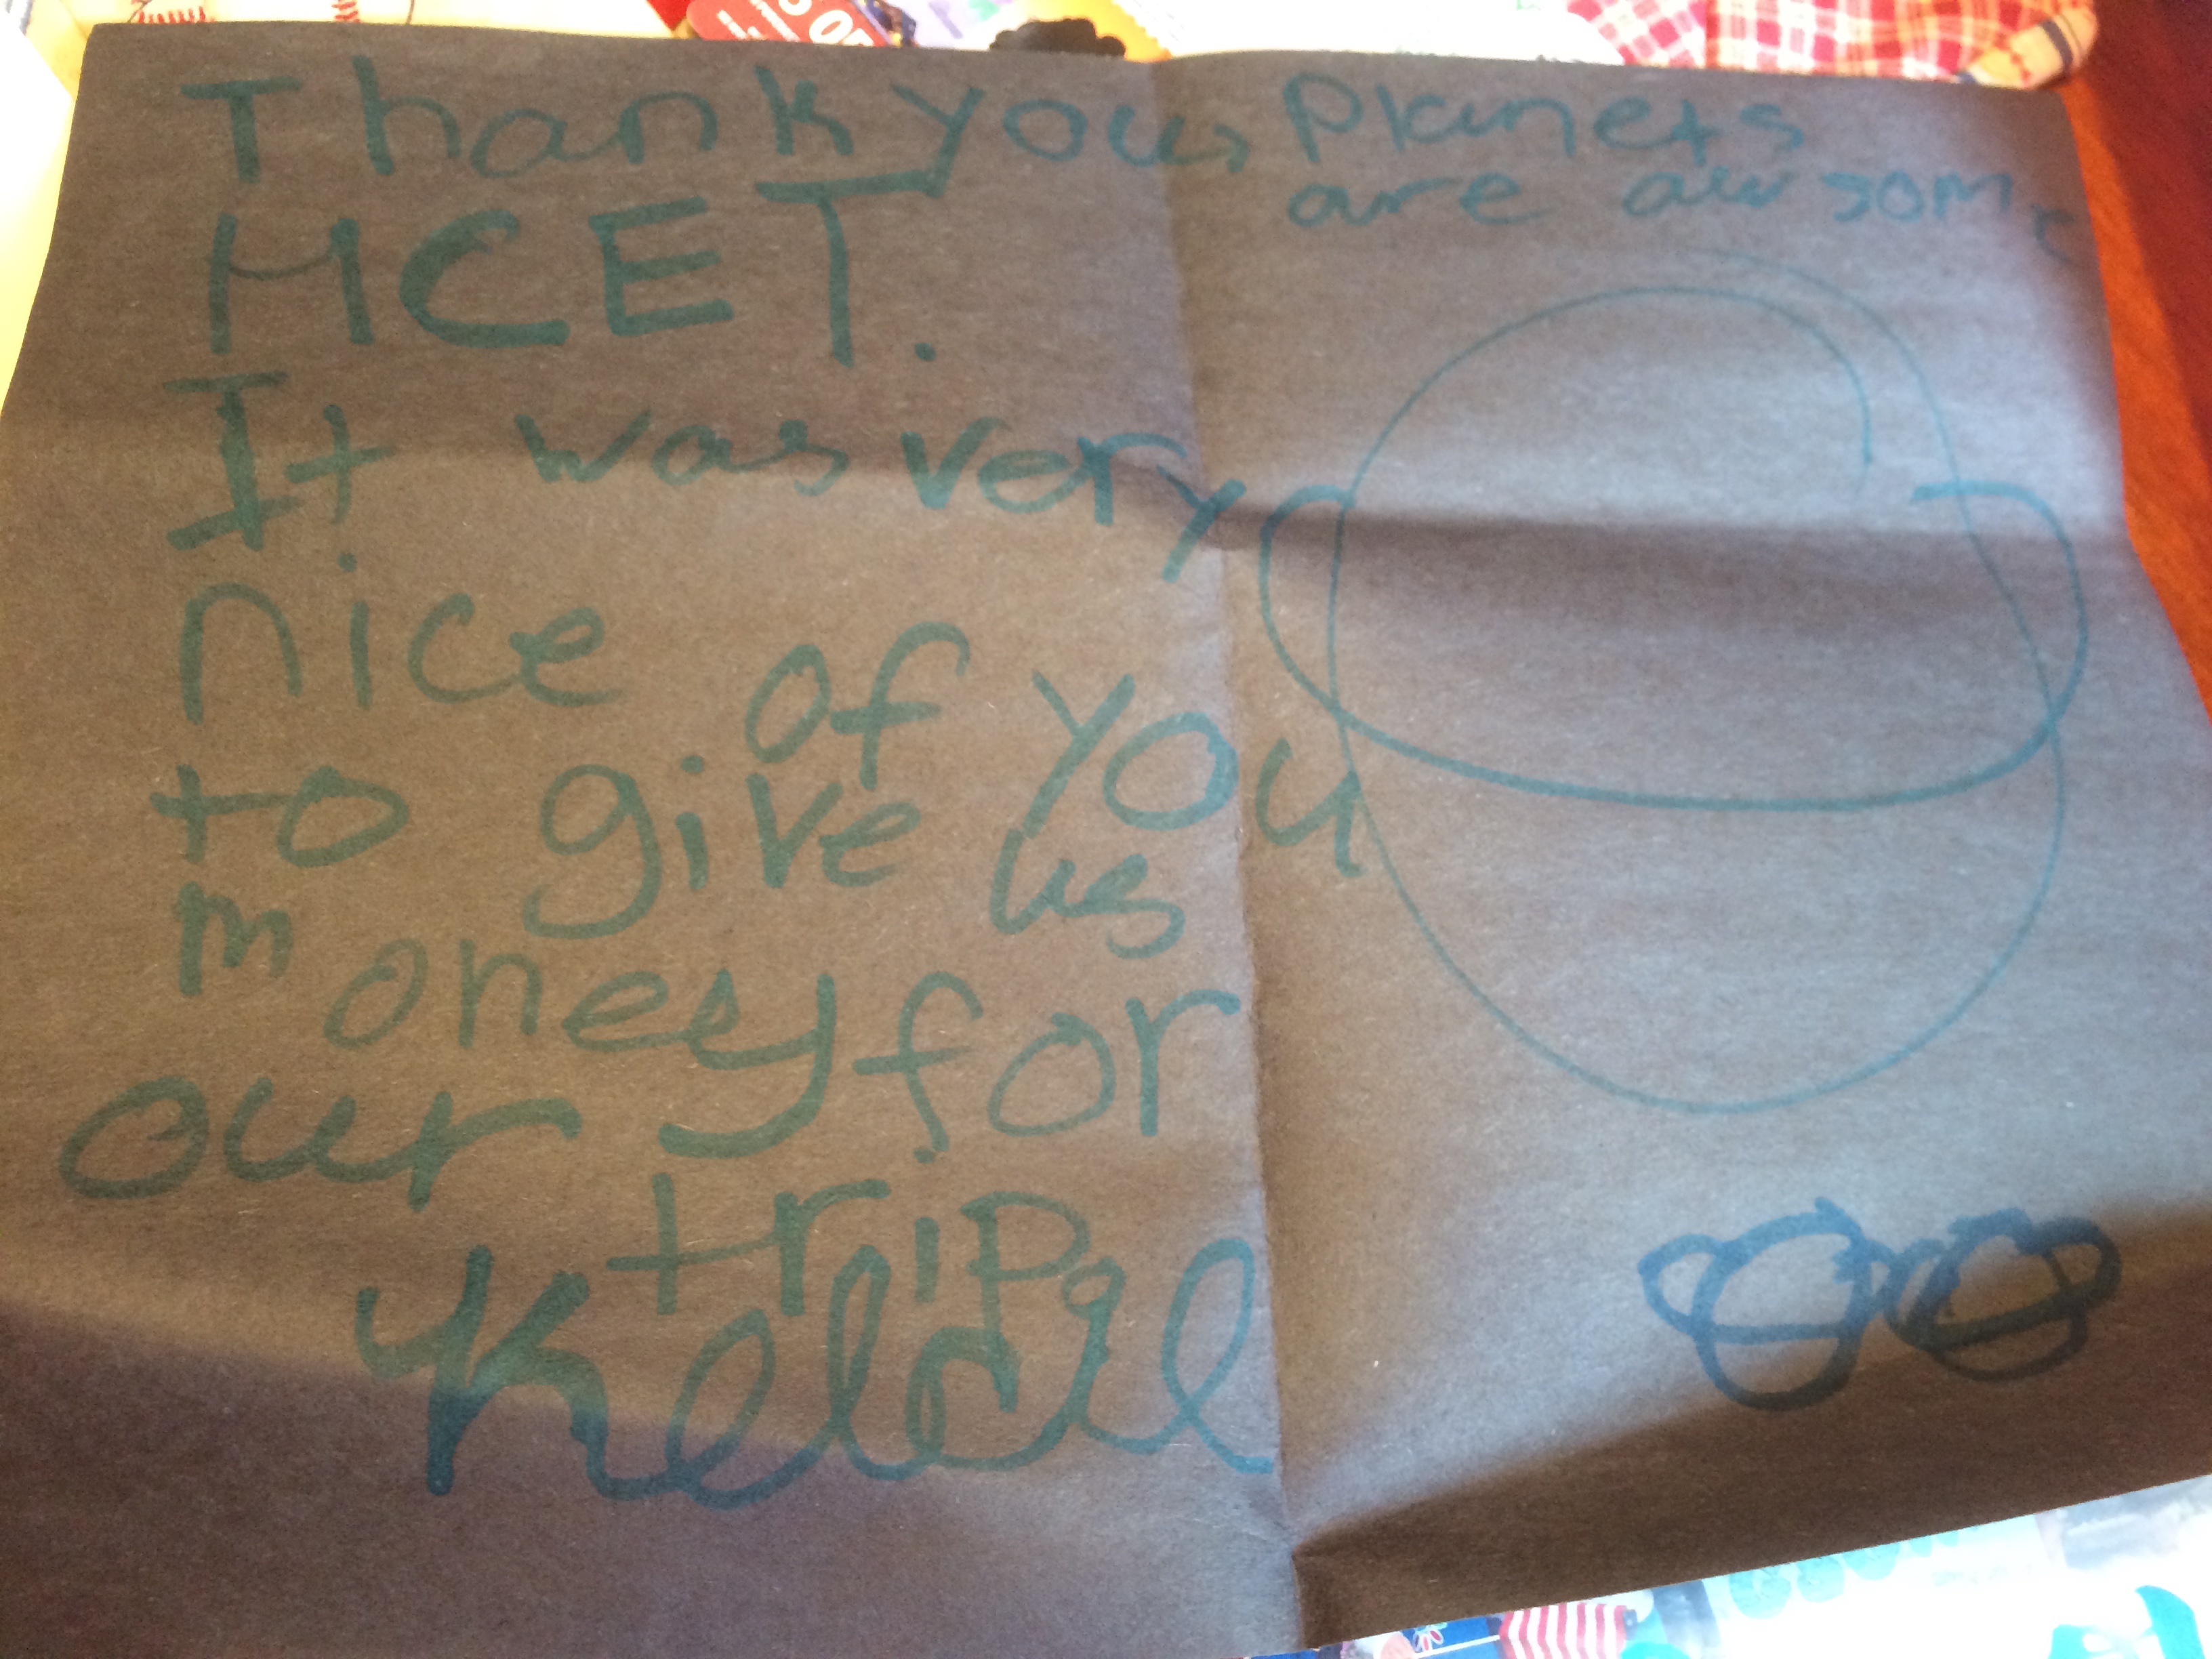 Thank you,
HCET.
It was very
nice of you
to give us
money for
our trip.
Planets
are awsome